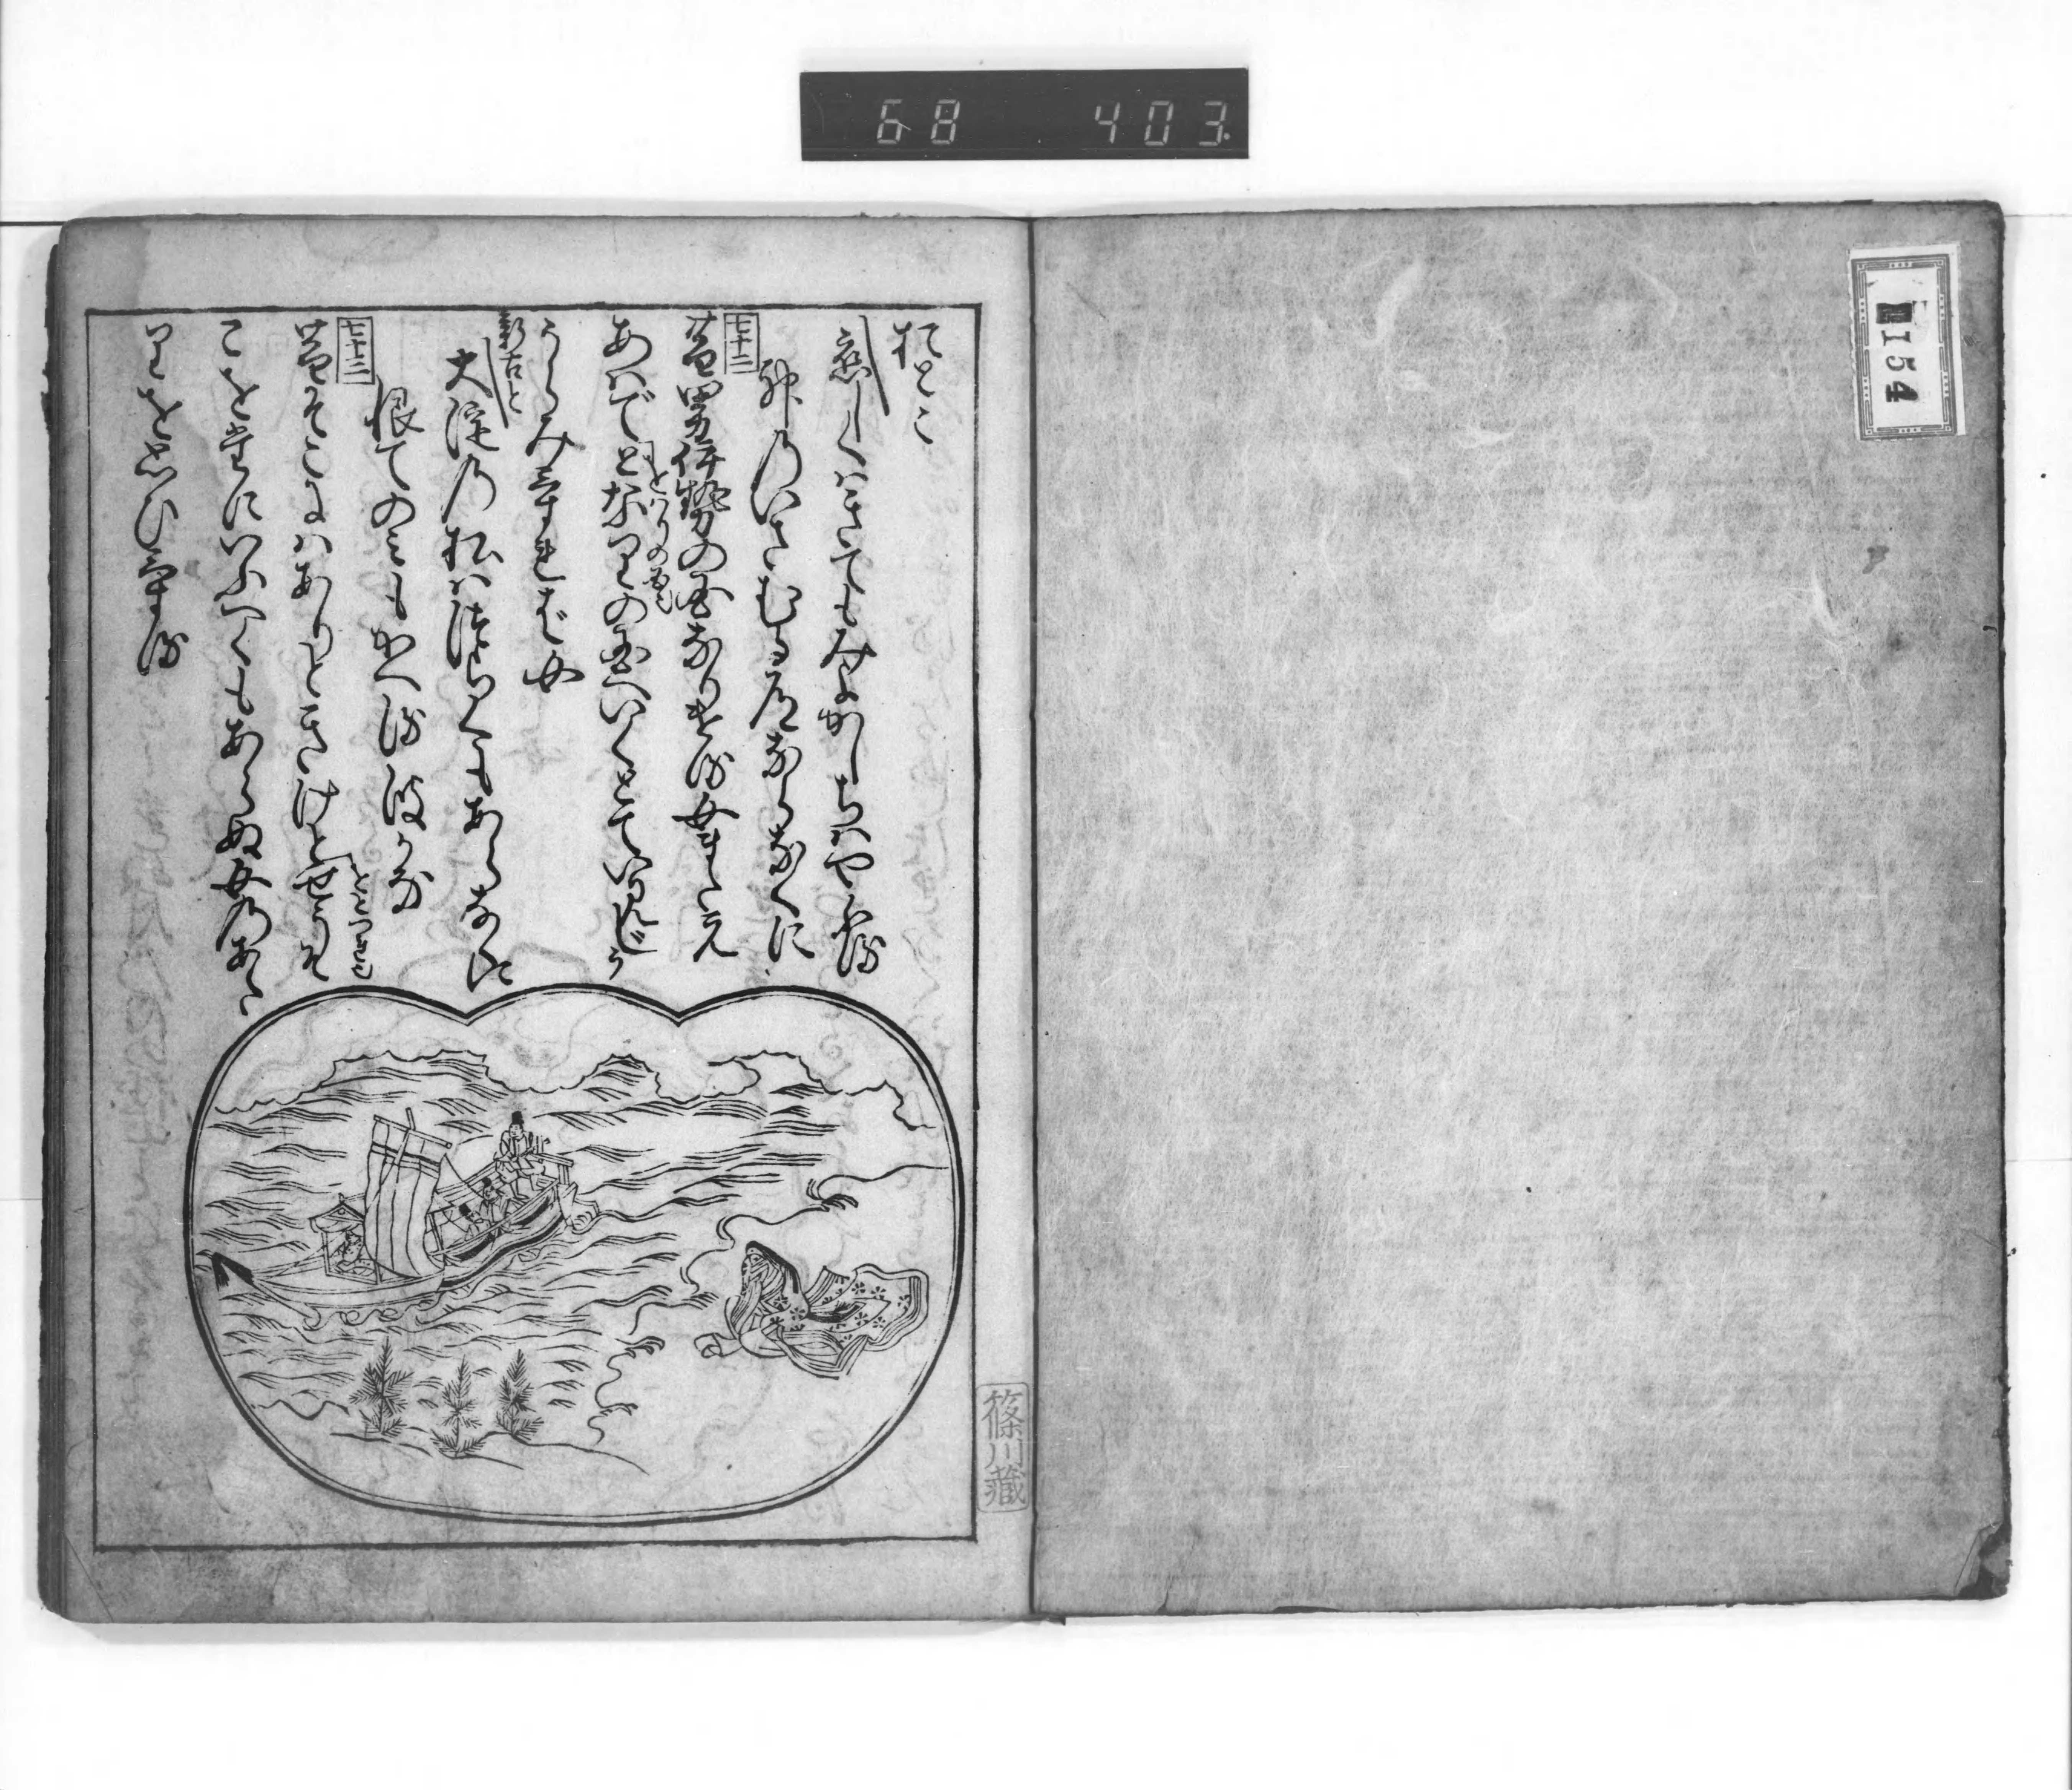 68 403
154
おとこ
恋しくはきてもみよかしちはやふる
神のいさむる道ならなくに
七十二
昔男伊勢の国なりける女またえ
あはでとなりの国へいくとていみじう
うらみければ女
新古と
大淀の松はつらくもあらなくに
恨てのみもかへる波かな
七十三
昔そこにはありときけどせうそ
こをだにいふべくもあらぬ女のあた
りをおもひける
篠川蔵